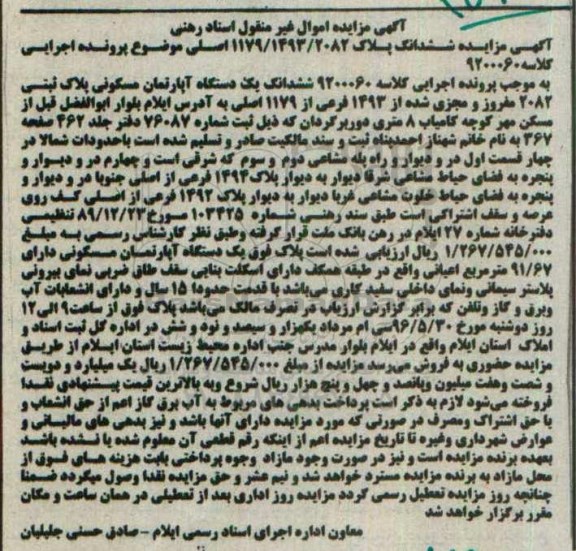 آگهی مزایده اموال غیر منقول اسناد رهنی
آگهی مزایده ششدانگ پلاک ۱۱۷۹/۱۴۹۳/۲۰۸۲ اصلی موضوع پرونده اجرایی
کلاسه ۹۲۰۰۰۶۰
به موجب پرونده اجرایی کلاسه ۹۲۰۰۰۶۰ ششدانگ یک دستگاه آپارتمان مسکونی پلاک ثبتی
۲۰۸۲ مفروز و مجزی شده از ۱۴۹۳ فرعی از ۱۱۷۹ اصلی به آدرس ایلام بلوار ابوالفضل قبل از
مسکن مهر کوچه کامیاب ۸ متری دوربرگردان که ذیل ثبت شماره ۷۶۰۸۷ دفتر جلد ۴۶۲ صفحه
۳۶۷ به نام خانم شهناز احمدپناه ثبت و سند مالکیت صادر و تسلیم شده است باحدودات شمالا در
چهار قسمت اول در و دیوار و راه پله مشاعی دوم و سوم که شرقی است و چهارم در و دیوار و
پنجره به فضای حیاط مشاعی شرقا دیوار به دیوار پلاک ۱۴۹۴ فرعی از اصلی جنوبا در و دیوار و
پنجره به فضای خلوت مشاعی غربا دیوار به دیوار پلاک ۱۴۹۲ فرعی از اصلی کف روی
عرصه و سقف اشتراکی است طبق سند رهنی شماره ۱۰۳۴۲۵ مورخ ۸۹/۱۲/۲۳ تنظیمی
دفترخانه شماره ۲۷ ایلام در رهن بانک ملت قرار گرفته وطبق نظر کارشناس رسمی به مبلغ
۱/۲۶۷/۵۴۵/۰۰۰ ریال ارزیابی شده است پلاک فوق یک دستگاه آپارتمان مسکونی دارای
۹۱/۶۷ مترمربع اعیانی واقع در طبقه همکف دارای اسکلت بنایی سقف طاق ضربی نمای بیرونی
پلاستر سیمانی ونمای داخلی سفید کاری می‌باشد با قدمت حدودا ۱۵ سال و دارای انشعابات آب
وبرق و گاز وتلفن که برابر گزارش ارزیاب در تصرف مالک می‌باشد پلاک فوق از ساعت ۹ الی ۱۲
روز دوشنبه مورخ ۹۶/۵/۳۰ سی ام مرداد یکهزار و سیصد و نود و شش در اداره کل ثبت اسناد و
املاک استان ایلام واقع در ایلام بلوار مدرس جنب اداره محیط زیست استان ایلام از طریق
مزایده حضوری به فروش می‌رسد مزایده از مبلغ ۱/۲۶۷/۵۴۵/۰۰۰ ریال یک میلیارد و دویست
و شصت وهفت میلیون وپانصد و چهل و پنج هزار ریال شروع وبه بالاترین قیمت پیشنهادی نقدا
فروخته می‌شود لازم به ذکر است پرداخت بدهی های مربوط به آب برق گاز اعم از حق انشعاب و
یا حق اشتراک ومصرف در صورتی که مورد مزایده دارای آنها باشد و نیز بدهی های مالیاتی و
عوارض شهرداری وغیره تا تاریخ مزایده اعم از اینکه رقم قطعی آن معلوم شده یا نشده باشد
بعهده برنده مزایده است و نیز در صورت وجود مازاد وجوه پرداختی بابت هزینه های فوق از
محل مازاد به برنده مزایده مسترد خواهد شد و نیم عشر و حق مزایده نقدا وصول میگردد ضمنا
چنانچه روز مزایده تعطیل رسمی گردد مزایده روز اداری بعد از تعطیلی در همان ساعت و مکان
مقرر برگزار خواهد شد
معاون اداره اجرای اسناد رسمی ایلام –صادق حسنی جلیلیان